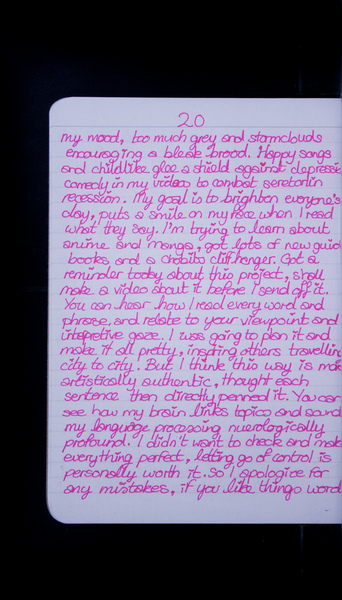 20
my mood, too much grey and stormclouds
encouraging a bleak brood. Happy songs
and childlike glee a shield against depressio
comedy in my video to combat seretonin
recession. My goal is to brighten everyone's
day, puts a smile on my face when I read
what they say. I'm trying to learn about
anime and manga, got lots of new guid
books and a chobits cliffhanger. Got a
reminder today about this project, shall
make a video about it before I send off it.
You can hear how I read every word and
phrase, and relate to your viewpoint and
intepretive gaze. I was going to plan it and
make it all pretty, inspiring others travelling
city to city. But I think this way is more
artistically authentic, thought each
sentence then directly penned it. You can
see how my brain links topics and sound
my language processing nuerologically
profound. I didn't want to check and make
everything perfect, letting go of control is
personally worth it. So I apologize for
any mistakes, if you like things word